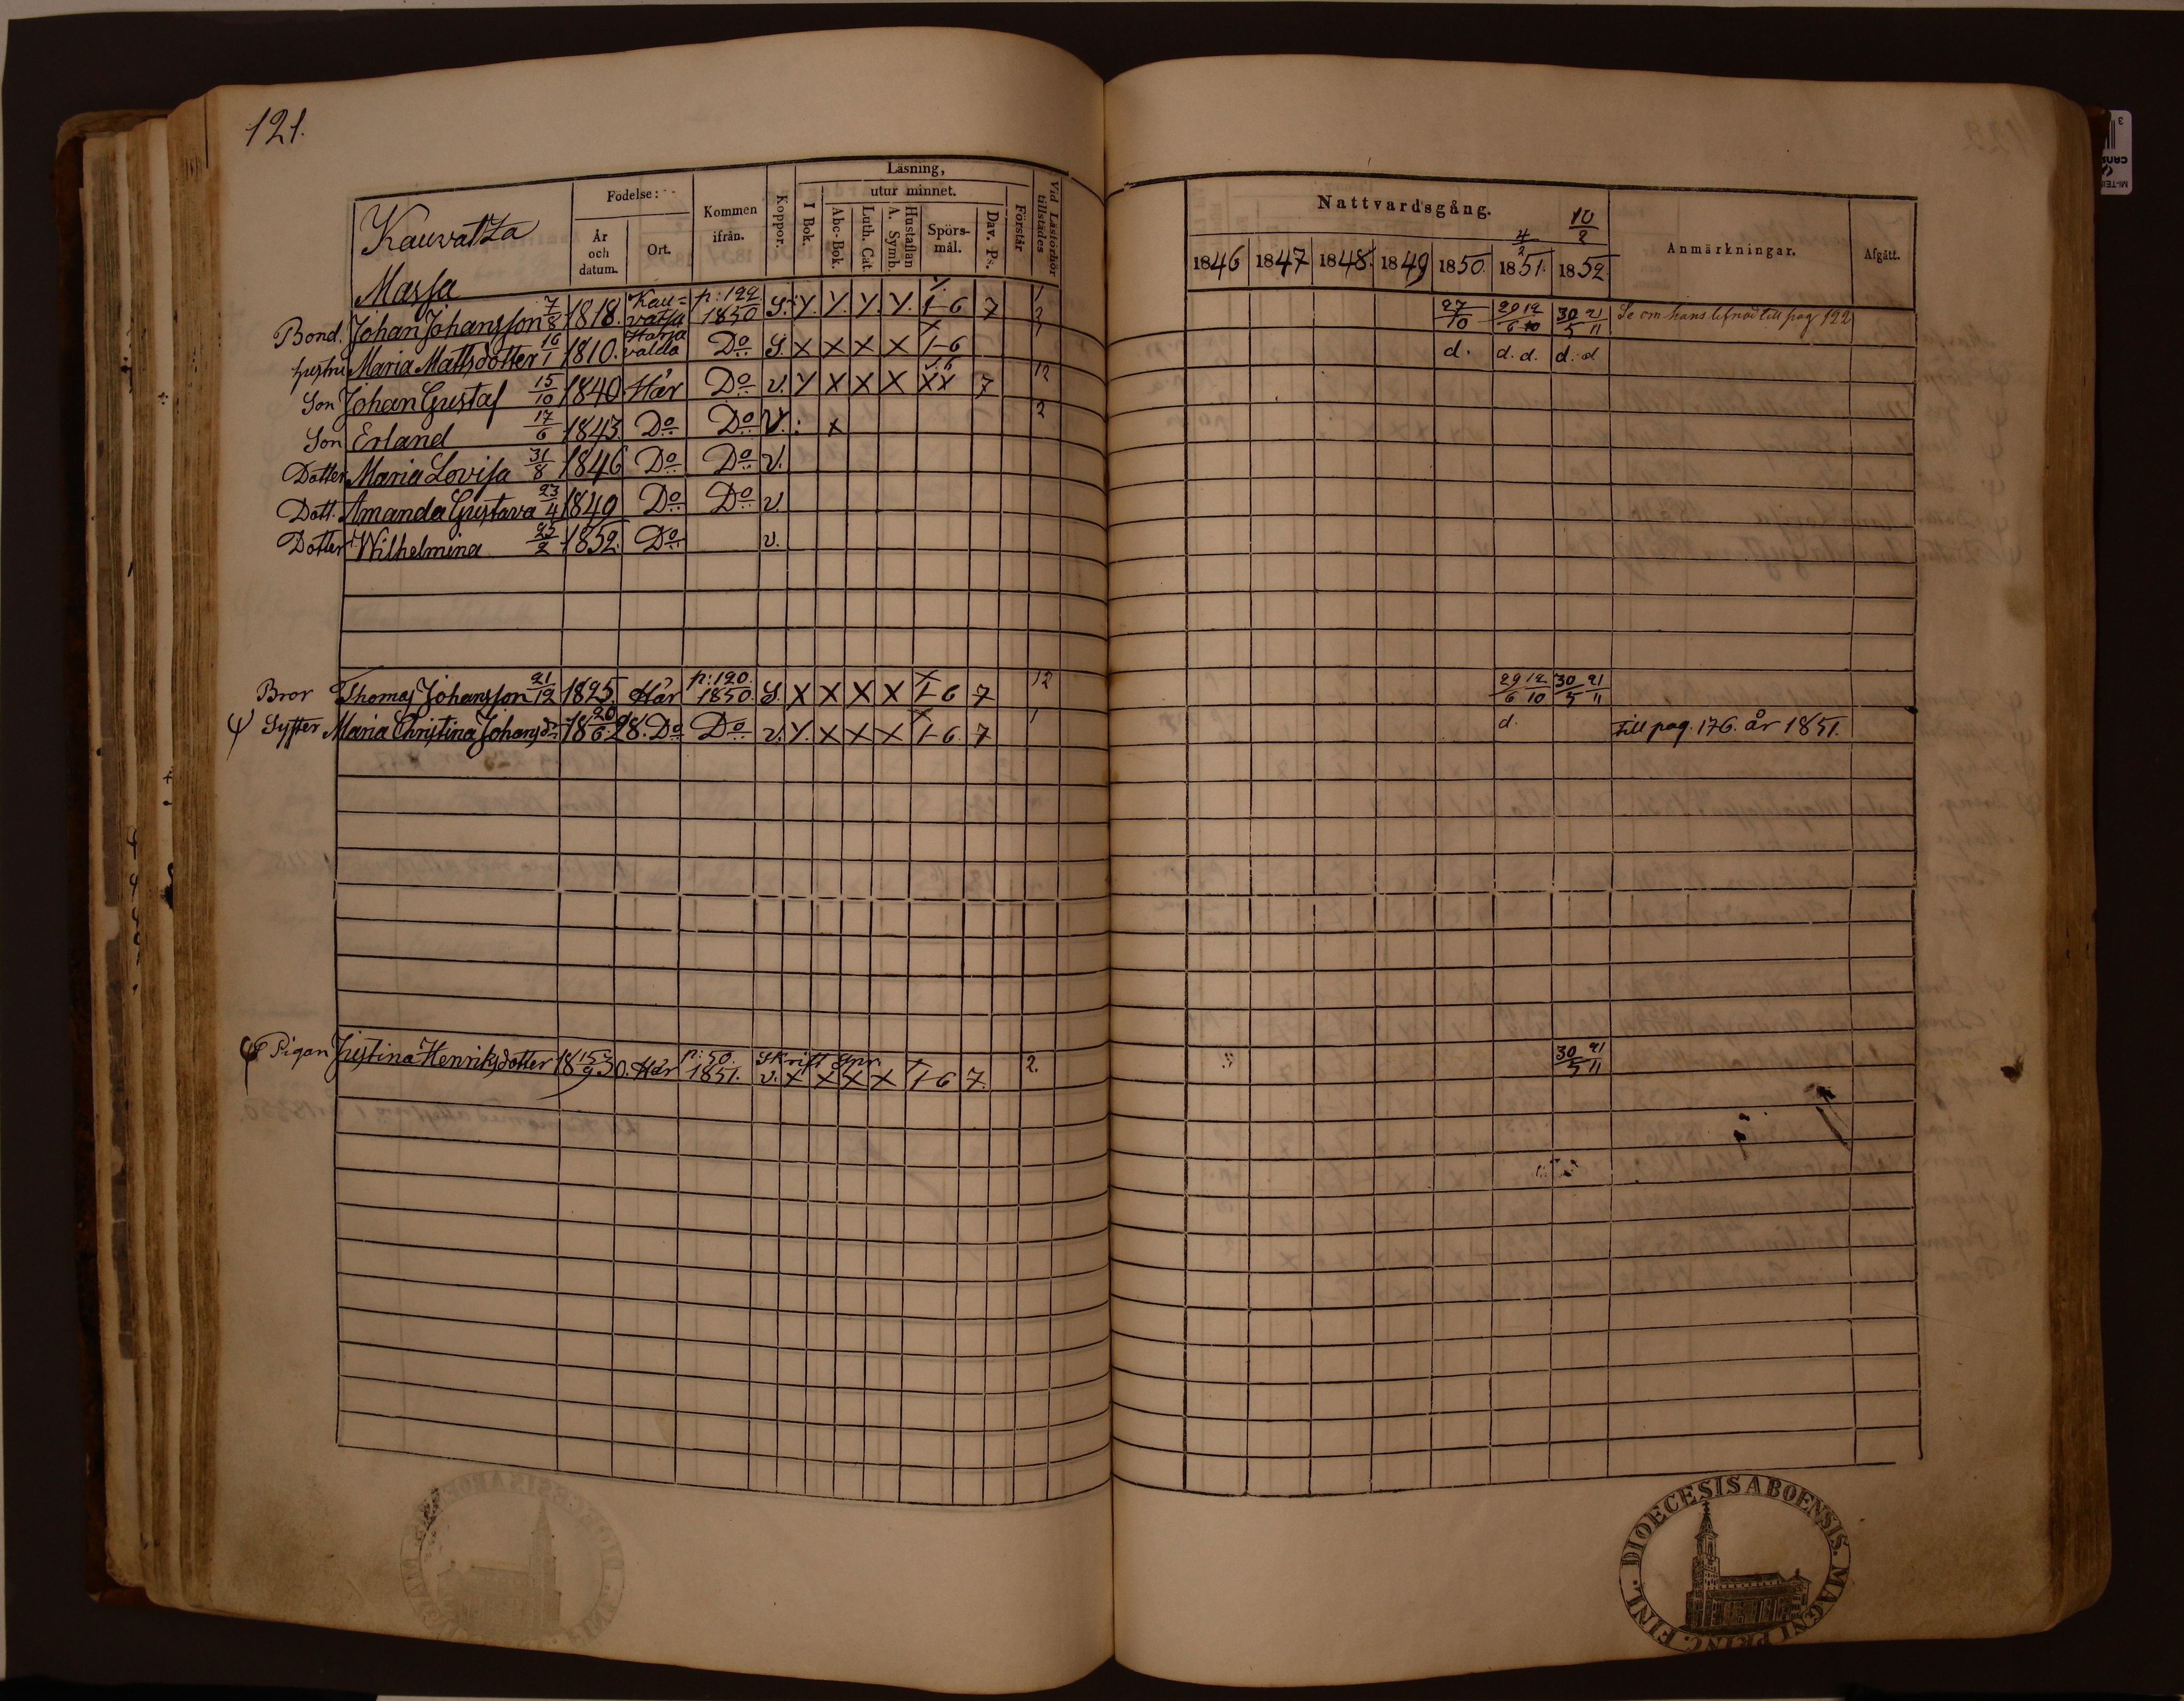 121.
Kauvatza
Födelse:
År och datum.
Ort.
Kommen ifrån.
Koppor.
Läsning,
I Bok.
utur minnet.
Abc-Bok.
Luth. Cat.
A. Symb.
Hustaflan
Spörsmål.
Dav. Ps.
Förstår
Vid Läsförhör tillstädes
Massa
Bond. Johan Johansson 7/8 1818. Kauvatsa p: 122 1850 S. Y. Y. Y. Y. 1-6 7
hustru Maria Mattsdotter 16/1 1810. Do S. X X X X 1-6
Son Johan Gustaf 15/10 1840 Här Do v. Y X X X XX 7 12
Son Erland 17/6 1843. Do Do V. x 2
Dotter Maria Lovisa 31/8 1846 Do Do v.
Dott. Amanda Gustava 23/4 1849 Do Do v.
Dotter Wilhelmina 25/2 1852. Do v.
Bror Thomas Johansson 21/12 1825. Här p: 120. 1850. S. X X X X 1-6 7 12
Syster Maria Christina Johansdr 20/6 1828. Do Do v. Y. X X X 1-6. 7 1
Pigan Justina Henriksdotter 15/9 1830. Här p: 50. 1851. Skrift v. X X X X 1-6 7. 2.
Nattvardsgång.
4/2 10/2
1846 1847 1848. 1849 1850. 1851. 1852.
Anmärkningar.
Afgått.
27/10 29/6 12/10 30/5 21/11 Se om hans lefnad till pag 122
d. d. d. d. d
29/6 12/10 30/5 21/11
d. till pag. 176. år 1851.
30/5 21/11
DIOECESIS ABOENSIS. MAGNI PRINC. FINL.